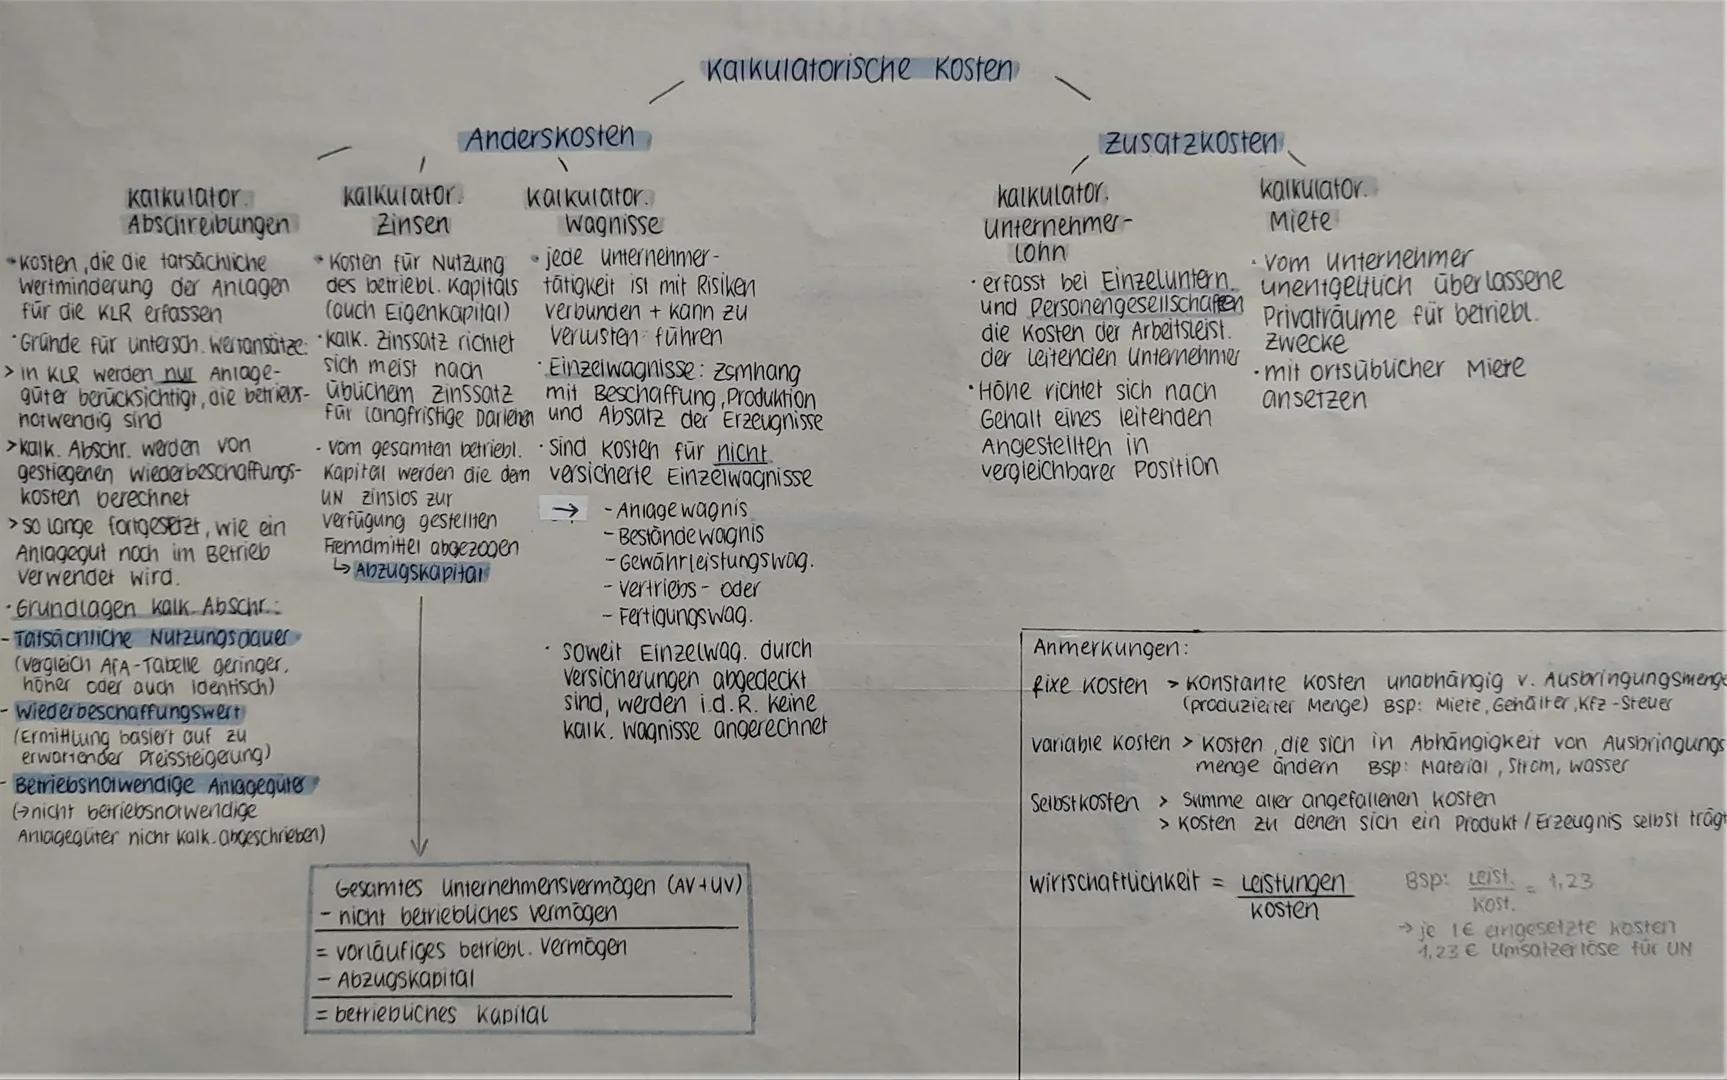 Kalkulatorische Kosten
Anderskosten
kalkulator.
Abschreibungen
• Kosten, die die tatsächliche
Wertminderung der Anlagen
für die KLR erfassen
• Gründe für untersch. Wertansätze:
> in KLR werden nur Anlage-
güter berücksichtigt, die betriebs-
notwendig sind
> kalk. Abschr. werden von
gestiegenen Wiederbeschaffungs-
kosten berechnet
> so lange fortgesetzt, wie ein
Anlagegut noch im Betrieb
verwendet wird.
• Grundlagen kalk. Abschr.:
- Tatsächliche Nutzungsdauer
(vergleich AfA-Tabelle geringer,
höher oder auch identisch)
- Wiederbeschaffungswert
(Ermittlung basiert auf zu
erwartender Preissteigerung)
- Betriebsnotwendige Anlagegüter
(→ nicht betriebsnotwendige
Anlagegüter nicht kalk. abgeschrieben)
kalkulator.
Zinsen
• Kosten für Nutzung
des betriebl. Kapitals
(auch Eigenkapital)
• kalk. Zinssatz richtet
sich meist nach
üblichem Zinssatz
für langfristige Darlehen
• vom gesamten betriebl.
Kapital werden die dem
UN zinslos zur
Verfügung gestellten
Fremdmittel abgezogen
↳ Abzugskapital
Kalkulator.
Wagnisse
• jede Unternehmer-
tätigkeit ist mit Risiken
verbunden + kann zu
Verlusten führen
• Einzelwagnisse: Zsmhang
mit Beschaffung, Produktion
und Absatz der Erzeugnisse
• sind Kosten für nicht
versicherte Einzelwagnisse
→ - Anlagewagnis
- Beständewagnis
- Gewährleistungswag.
- Vertriebs- oder
- Fertigungswag.
• soweit Einzelwag. durch
Versicherungen abgedeckt
sind, werden i.d.R. keine
kalk. Wagnisse angerechnet
Gesamtes Unternehmensvermögen (AV+UV)
- nicht betriebliches Vermögen
= vorläufiges betriebl. Vermögen
- Abzugskapital
= betriebliches Kapital
Zusatzkosten
kalkulator.
Unternehmer-
lohn
• erfasst bei Einzeluntern.
und Personengesellschaften
die Kosten der Arbeitsleist.
der leitenden Unternehmer
• Höhe richtet sich nach
Gehalt eines leitenden
Angestellten in
vergleichbarer Position
kalkulator.
Miete
• vom Unternehmer
unentgeltlich überlassene
Privaträume für betriebl.
Zwecke
• mit ortsübücher Miete
ansetzen
Anmerkungen:
fixe Kosten > konstante Kosten unabhängig v. Ausbringungsmenge
(produzierter Menge) BSP: Miete, Gehälter, Kfz-Steuer
variable Kosten > Kosten, die sich in Abhängigkeit von Ausbringungs
menge ändern BSP: Material, Strom, Wasser
Selbstkosten > Summe aller angefallenen Kosten
> Kosten zu denen sich ein Produkt / Erzeugnis selbst trägt
Wirtschaftlichkeit = Leistungen / Kosten
BSP: Leist. / Kost. = 1,23
→ je 1€ eingesetzte Kosten
1,23 € Umsatzerlöse für UN